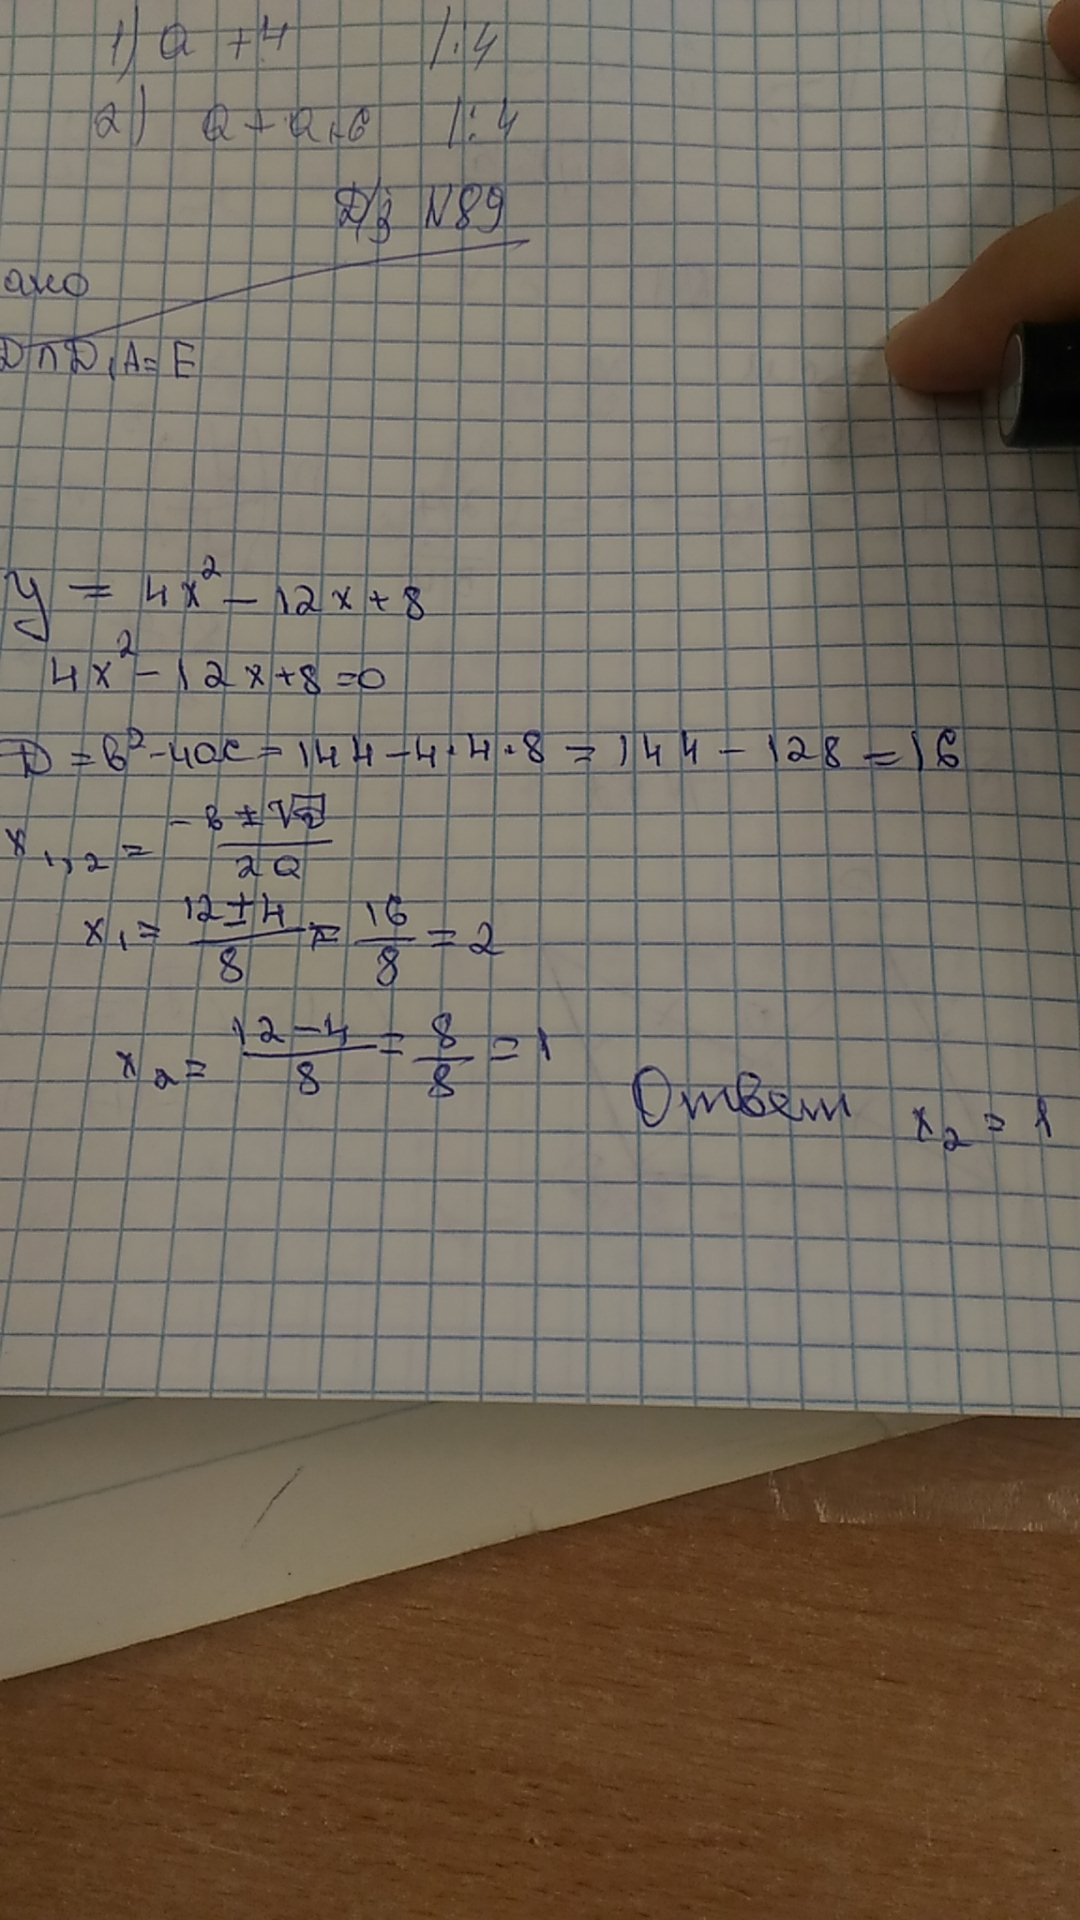 1) a + 4 /:4
2) a + a + 6 /:4
Д/з N89
ано
D ∩ D₁A = E
y = 4x² - 12x + 8
4x² - 12x + 8 = 0
D = b² - 4ac = 144 - 4·4·8 = 144 - 128 = 16
x₁,₂ = (-b ± √D)/2a
x₁ = (12 ± 4)/8 = 16/8 = 2
x₂ = (12 - 4)/8 = 8/8 = 1
Ответ x₂ = 1